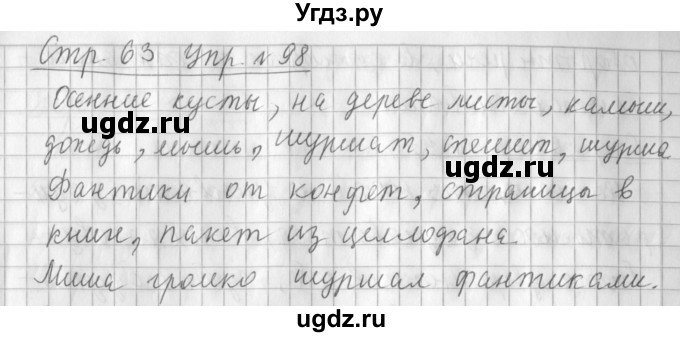 Угдз.ру
Стр 63 упр № 98
Осенние кусты, на дереве листы, камыш,
ugdz.ru ugdz.ru
дождь, мышь, шуршат, спешит, шурша
Фантики от конфет, страницы в
книге, пакет из целлофана
Миша громко шуршал фантиками.
ugdz.ru